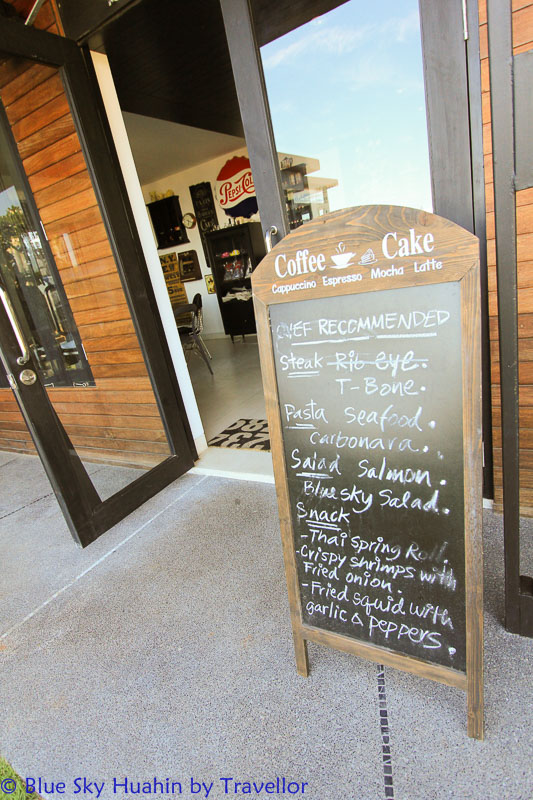 PEPSI-COLA
Coffee Cake
Cappuccino Espresso Mocha Latte
CHEF RECOMMENDED
Steak Rib eye.
T-Bone.
Pasta Seafood.
Carbonara.
Salad Salmon.
Bluesky Salad.
Snack
-Thai Spring Roll
-Crispy shrimps with
Fried onion.
-Fried squid with
garlic & peppers.
© Blue Sky Huahin by Travellor